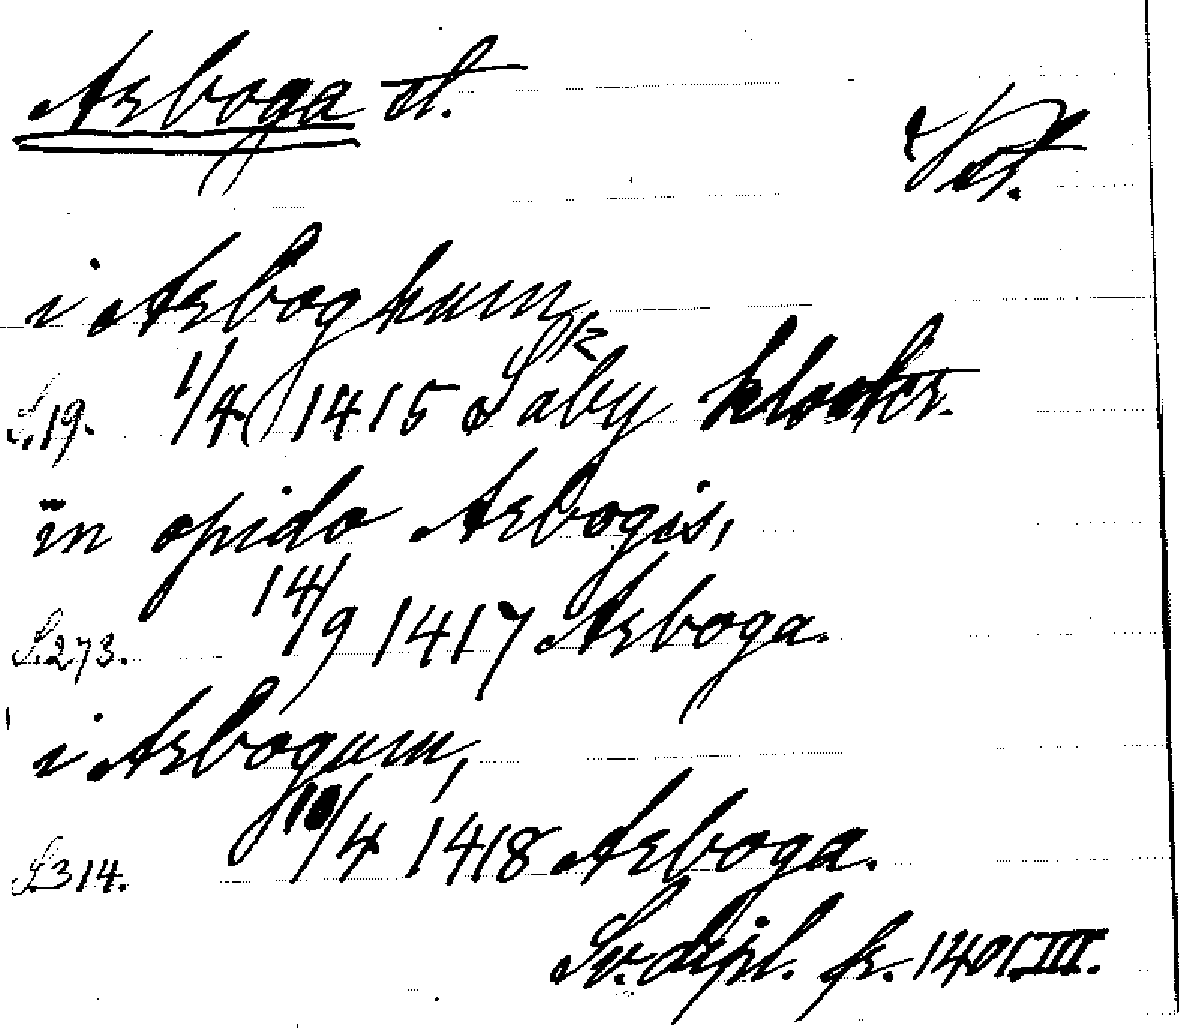 Arboga st.
i Arboghum
S. 19. 1/4 1415 Säby kloster.
in opido Arbogis,
S. 273. 14/9 1417 Arboga.
i Arbogum,
S. 314. 10/4 1418 Arboga.
Sv. dipl. fr. 1401. III.